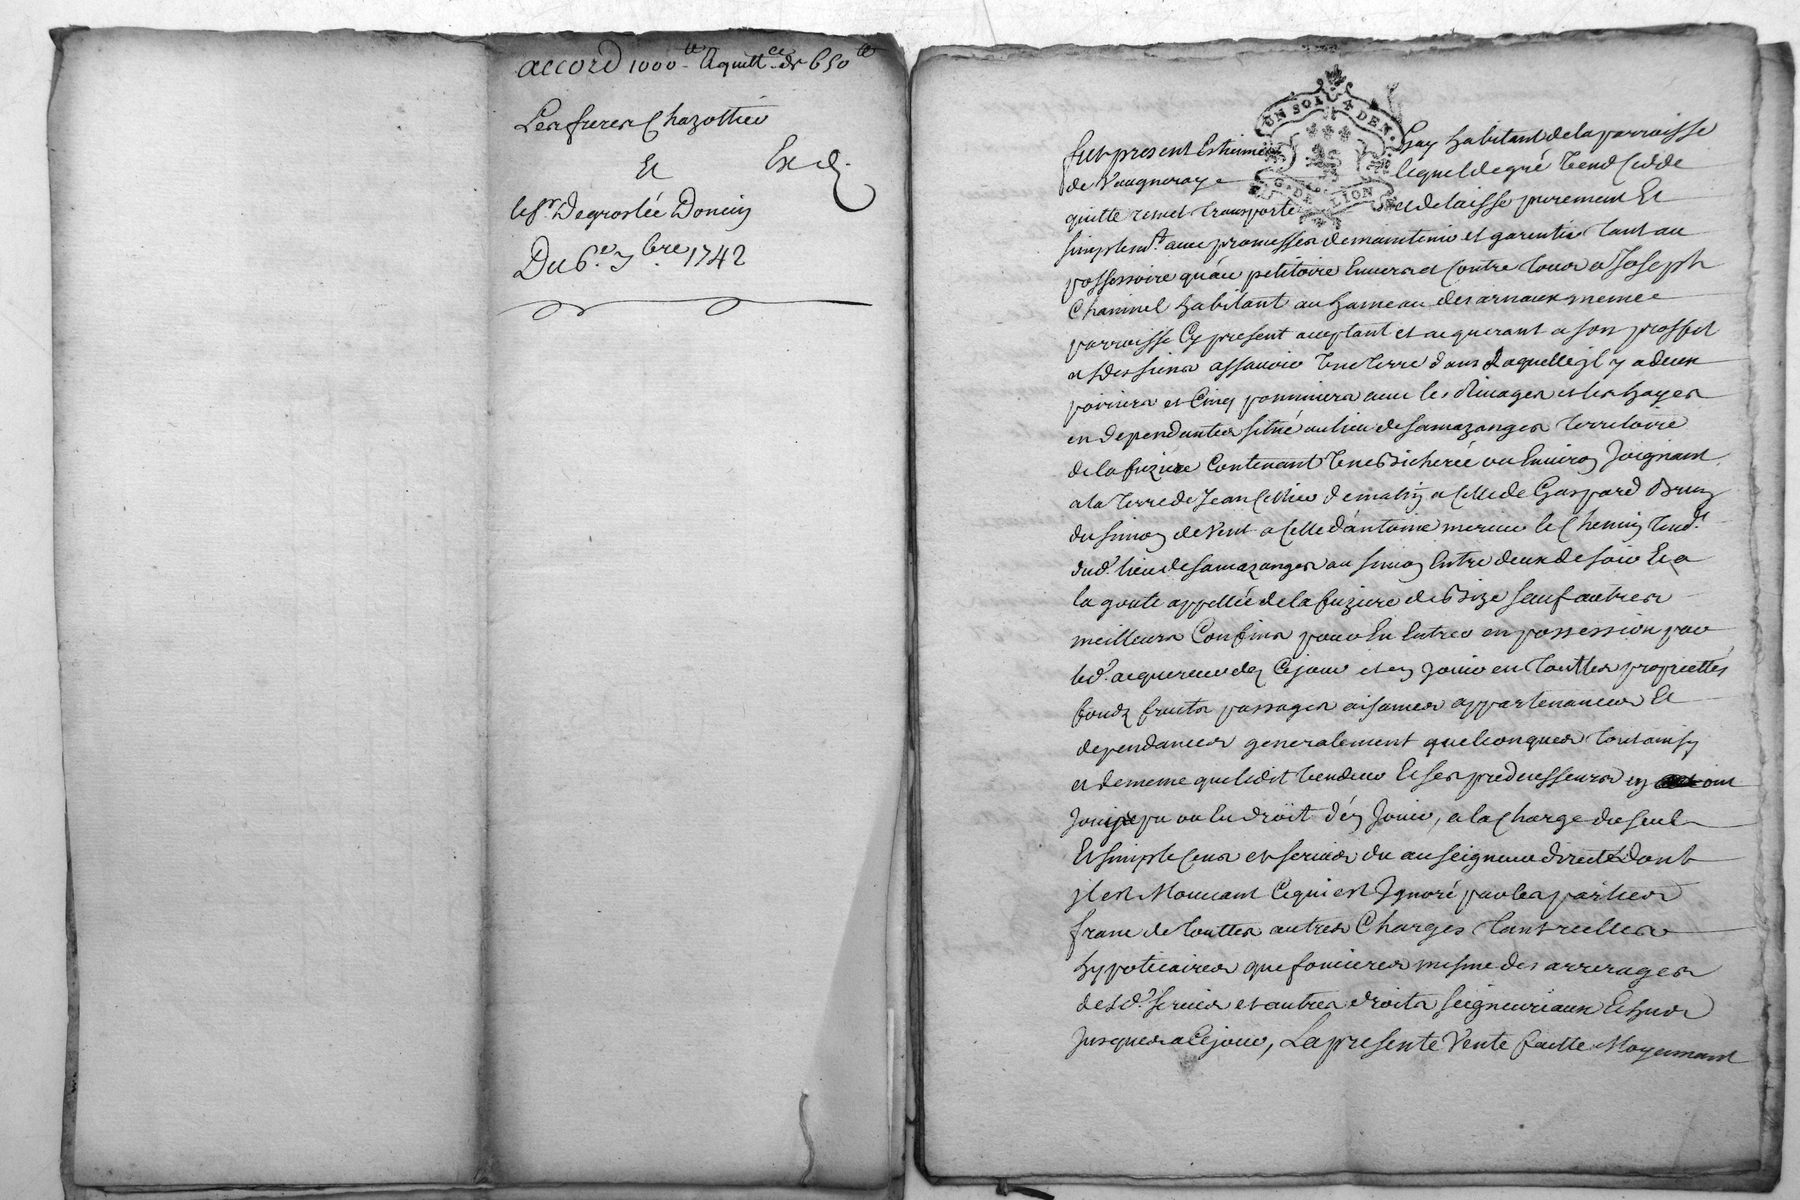 accord 1000.tt Et quitt.ce de 650tt
Les freres Chazottier
Et
Exd.
le sr. Degroslée Doncin
Du 6.e 7.bre 1742
UN SOL 4 DEN.
G. DE LION
fut present Estienne Gay habitant de la parroisse
de Vaugneray lequel de gré vend cedde
quitte remet transporte et delaisse purement Et
simplemt. avec promesses de maintenir et garentir tant au
possessoire qu'au petitoire Envers et contre tous a Joseph
Charmel habitant au hameau des arnaux meme
parroisse Cy present aceptant et aquerant a son proffit
et des siens assavoir Une terre dans Laquelle jl y a deux
poiriers et Cinq pommiers avec les Rivages et les hayes
en dependantes situé au lieu de Samazanges territoire
de la fuziere Contenant Une Bicherée ou Environ Joignant
a la terre de Jean Cellier de matin a Celle de Gaspard Brun
du simon de Vent a Celle d'antoine mercier le Chemin tend.t
dud. lieu de Samazanges au simon Entre deux de soir Et a
la goute appellée de la fuziere de Bize sauf autres
meilleurs Confins pour En Entrer en possession par
led. aquereur dez Cejour et en Jouir en touttes proprietés
fondz fruits passages aisances appartenances Et
dependances generalement quelconques tout ainsy
et de meme que ledit Vendeur Et ses predecesseurs en ont
Jouy pu ou du droit d'en Jouir, a la Charge du seul
Et simple Cens et service du au seigneur directe dont
jl est Mouvant Ce qui est Ignoré par les parties
franc de touttes autres Charges tant reelles
hypotecaires que foncieres mesme des arrerages
desd. service et autres droits seigneuriaux Echus
Jusques a Cejour, La presente Vente faitte Moyennant